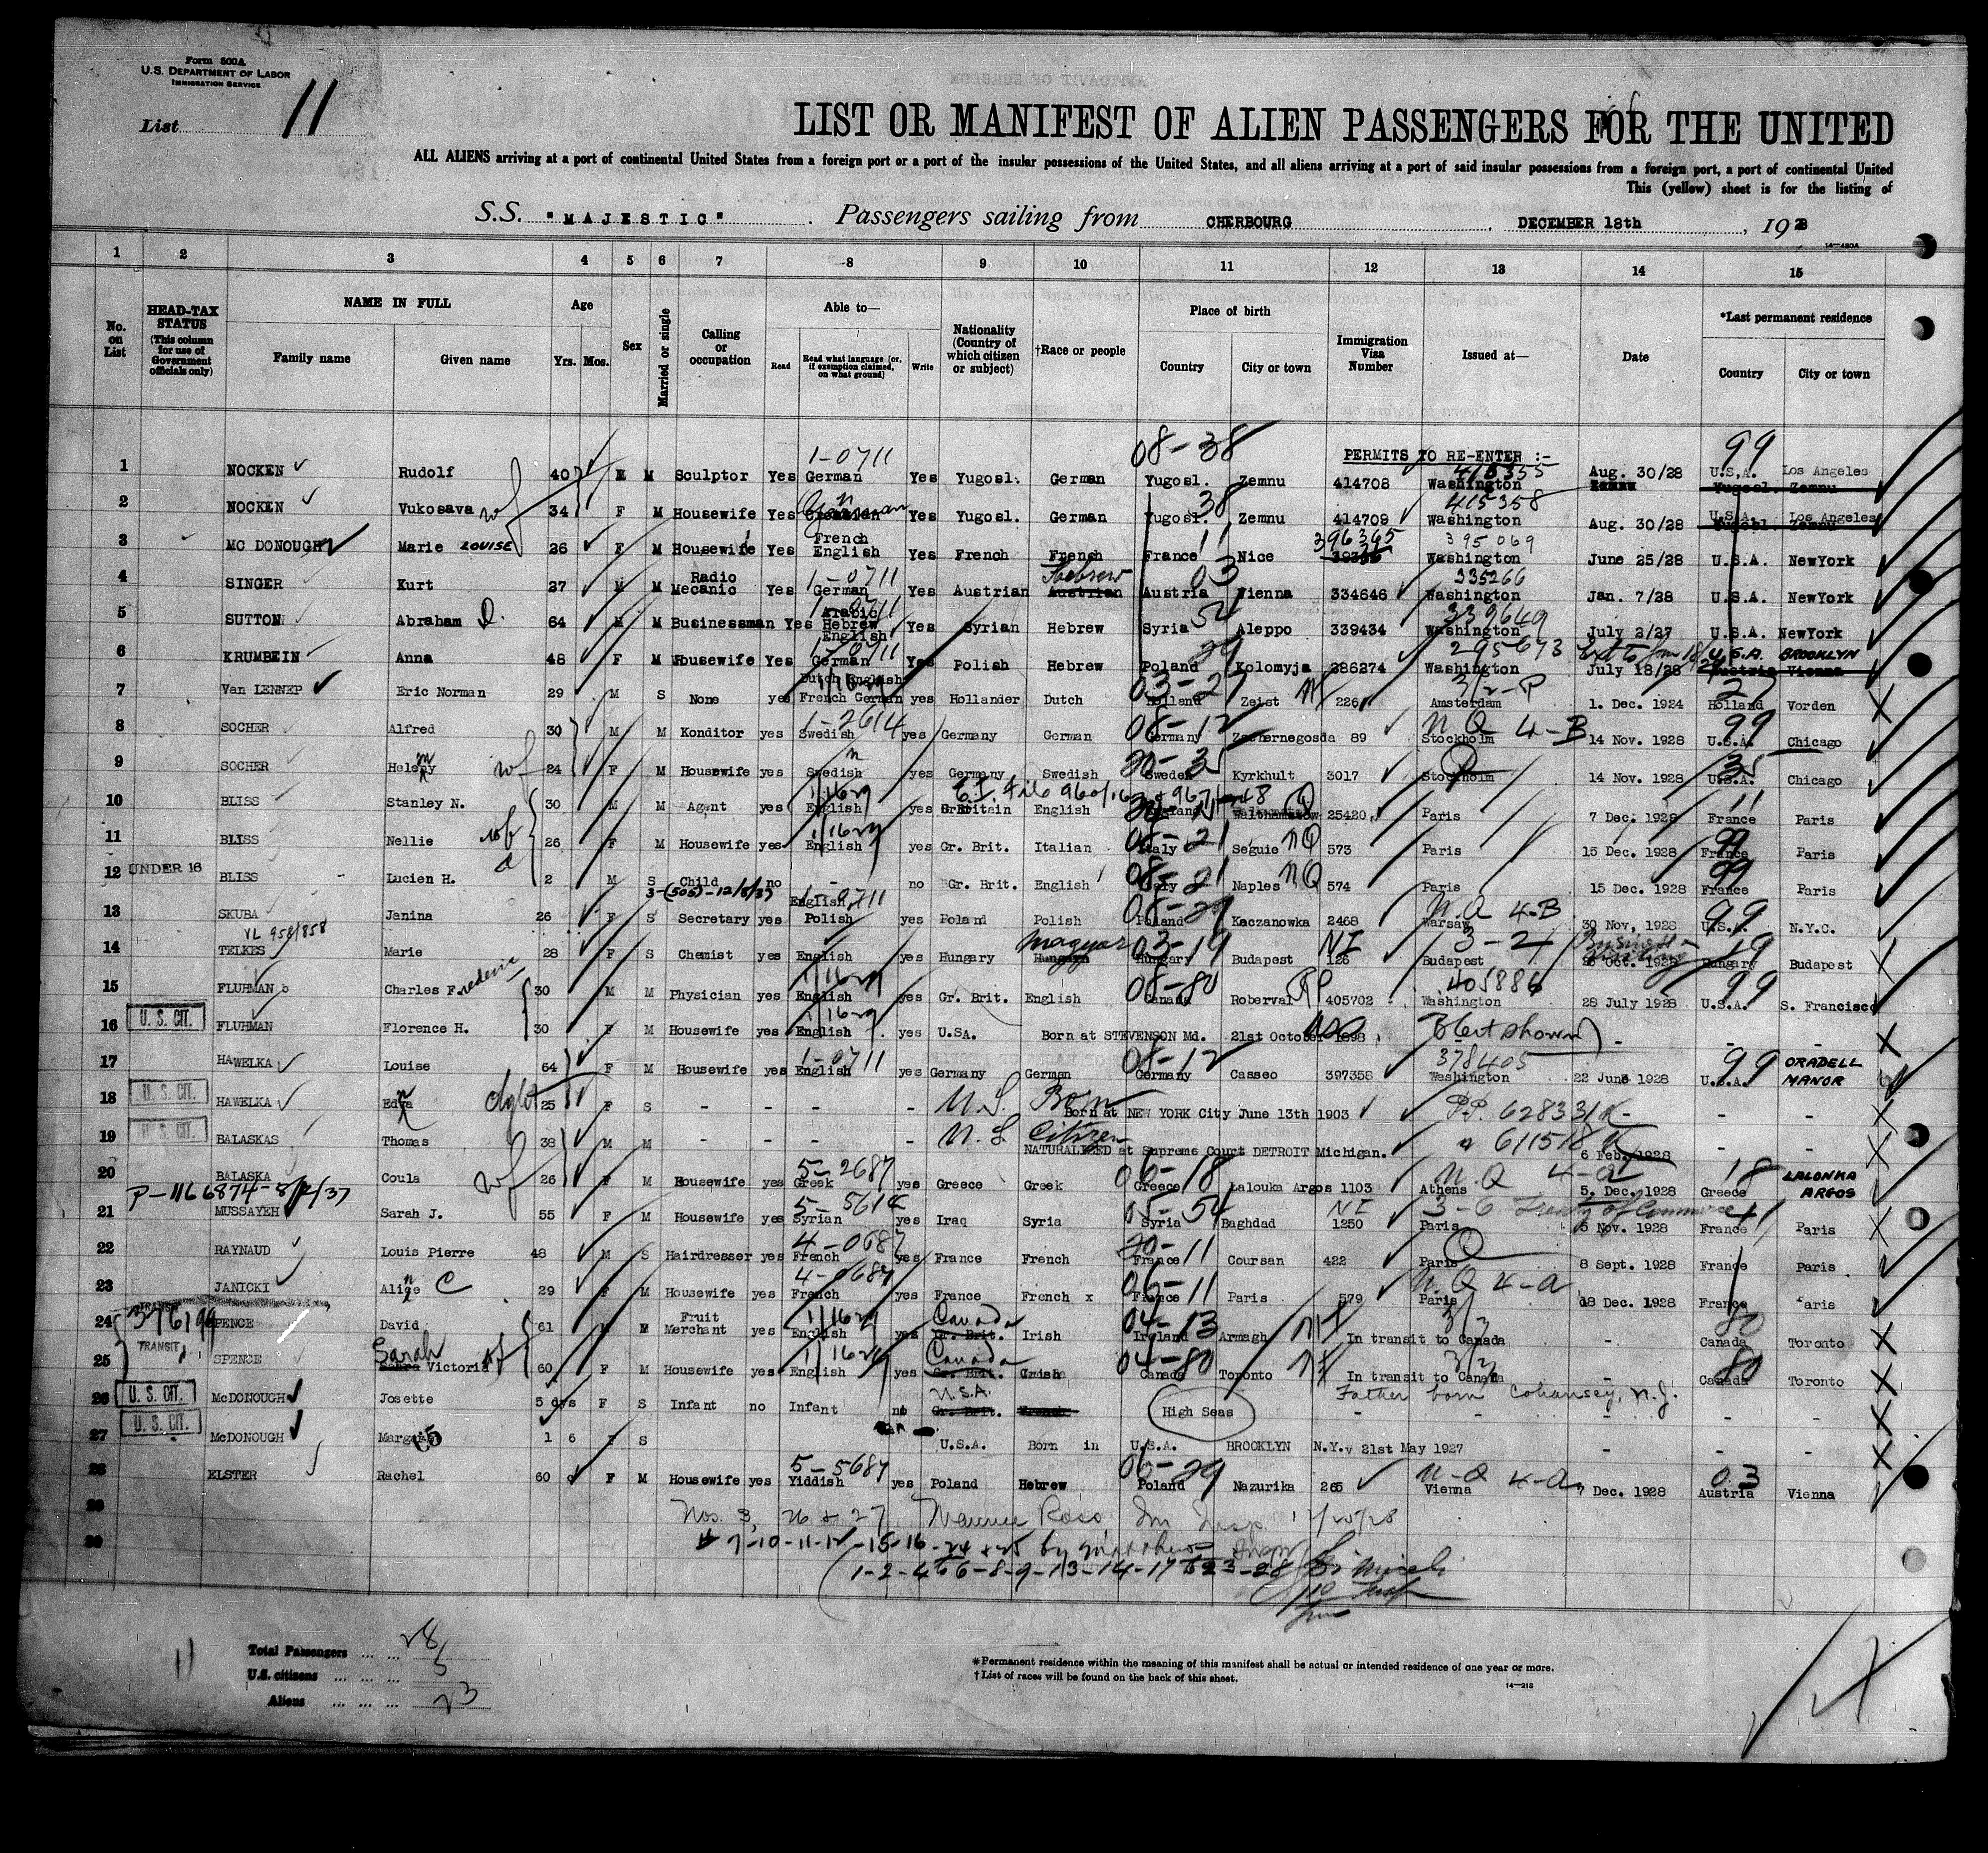 Form 500A
U.S. DEPARTMENT OF LABOR
IMMIGRATION SERVICE
List 11
LIST OR MANIFEST OF ALIEN PASSENGERS FOR THE UNITED
ALL ALIENS arriving at a port of continental United States from a foreign port or a port of the insular possessions of the United States, and all aliens arriving at a port of said insular possessions from a foreign port, a port of continental United
This (yellow) sheet is for the listing of
S.S. "MAJESTIC" Passengers sailing from CHERBOURG, DECEMBER 18th, 1928
14—480A
1 2 3 4 5 6 7 8 9 10 11 12 13 14 15
No. on List
HEAD-TAX STATUS (This column for use of Government officials only)
NAME IN FULL
Family name
Given name
Age
Yrs. Mos.
Sex
Married or single
Calling or occupation
Able to—
Read
Read what language (or, if exemption claimed, on what ground)
Write
Nationality (Country of which citizen or subject)
†Race or people
Place of birth
Country
City or town
Immigration Visa Number
Issued at—
Date
*Last permanent residence
Country
City or town
08-38 PERMITS TO RE-ENTER :- 99
1-0711 415355
1 NOCKEN Rudolf 40 M M Sculptor Yes German Yes Yugosl. German Yugosl. Zemnu 414708 Washington Aug. 30/28 U.S.A. Los Angeles
Yugosl. Zemnu
38 415358
2 NOCKEN Vukosava wf 34 F M Housewife Yes German Yes Yugosl. German Yugosl. Zemnu 414709 Washington Aug. 30/28 U.S.A. Los Angeles
French 11 396365 395069
3 MC DONOUGH Marie LOUISE 26 F M Housewife Yes English Yes French French France Nice Washington June 25/28 U.S.A. NewYork
Radio 1-0711 Hebrew 03 335266
4 SINGER Kurt 27 M M Mecanic Yes German Yes Austrian Austrian Austria Vienna 334646 Washington Jan. 7/28 U.S.A. NewYork
Arabic 54 339649
5 SUTTON Abraham D. 64 M M Businessman Yes Hebrew Yes Syrian Hebrew Syria Aleppo 339434 Washington July 2/27 U.S.A. NewYork
English
1-0711 29 295673 U.S.A. BROOKLYN
6 KRUMBEIN Anna 48 F M Housewife Yes German Yes Polish Hebrew Poland Kolomyja 286274 Washington July 18/28 Austria Vienna
Dutch English
03-27 3/2-P
7 Van LENNEP Eric Norman 29 M S None yes French German yes Hollander Dutch Holland Zeist 226 Amsterdam 1. Dec. 1924 Holland Vorden
1-2614 08-12 N.Q 4-B 99
8 SOCHER Alfred 30 M M Konditor yes Swedish yes Germany German Germany 89 Stockholm 14 Nov. 1928 U.S.A. Chicago
9 SOCHER Heleny wf 24 F M Housewife yes Swedish yes Germany Swedish Sweden Kyrkhult 3017 Stockholm 14 Nov. 1928 U.S.A. Chicago
10 BLISS Stanley N. 30 M M Agent yes English yes Britain English England Walthamstow 25420 Paris 7 Dec. 1928 France Paris
08-21 NQ 99
11 BLISS Nellie wf 26 F M Housewife yes English yes Gr. Brit. Italian Italy Seguie 573 Paris 15 Dec. 1928 France Paris
08-21 NQ 99
12 UNDER 16 BLISS Lucien H. 2 M S Child no - no Gr. Brit. English Italy Naples 574 Paris 15 Dec. 1928 France Paris
3-(505)-12/8/37 English 0711 08-29 N.Q 4-B 99
13 SKUBA Janina 26 F S Secretary yes Polish yes Poland Polish Poland Kaczanowka 2468 Warsaw 30 Nov, 1928 U.S.A. N.Y.C.
VL 958/858 Magyar 03-19 NI 3-2 19
14 TELKES Marie 28 F S Chemist yes English yes Hungary Hungary Hungary Budapest 126 Budapest Oct. 1928 Hungary Budapest
08-80 RP 405886 99
15 FLUHMAN Charles Frederic 30 M M Physician yes English yes Gr. Brit. English Canada Roberval 405702 Washington 28 July 1928 U.S.A. S. Francisco
16 U. S. CIT. FLUHMAN Florence H. 30 F M Housewife yes English yes U.SA. Born at STEVENSON Md. 21st October 1898 - - -
1-0711 08-12 378405 99 ORADELL
17 HAWELKA Louise 64 F M Housewife yes English yes Germany German Germany Casseo 397358 Washington 22 June 1928 U.S.A. MANOR
18 U. S. CIT. HAWELKA Edna dght 25 F S - - - - U.S. Born Born at NEW YORK City June 13th 1903 P.P. 628331 - -
19 U. S. CIT. BALASKAS Thomas 38 M M - - - - U.S. Citizen 611518 - -
NATURALIZED at Supreme Court DETROIT Michigan. 6 Feb. 1928
5-2687 06-18 N.Q 4-a 18 LALONKA
20 BALASKA Coula wf 26 F M Housewife yes Greek yes Greece Greek Greece Lalouka Argos 1103 Athens 5. Dec. 1928 Greece ARGOS
P-1166874-8/12/37 NI 3-6 Treaty of Commerce 11
21 MUSSAYEH Sarah J. 55 F M Housewife yes Syrian yes Iraq Syria Syria Baghdad 1250 Paris 5 Nov. 1928 France Paris
4-0687 11
22 RAYNAUD Louis Pierre 48 M S Hairdresser yes French yes France French France Coursan 422 Paris 8 Sept. 1928 France Paris
4-0687 06-11 N.Q 4-a
23 JANICKI Aline C 29 F M Housewife yes French yes France French x France Paris 579 Paris 18 Dec. 1928 France Paris
TRANSIT Fruit Canada 04-13 80
24 SPENCE David 61 M M Merchant yes English yes Gr. Brit. Irish Ireland Armagh In transit to Canada - Canada Toronto
TRANSIT Sarah Canada 04-80 80
25 SPENCE Victoria wf 60 F M Housewife yes English yes Gr. Brit. Irish Canada Toronto In transit to Canada Canada Toronto
U.S.A. Father born Cohansey, N.J.
26 U. S. CIT. McDONOUGH Josette 5 dys F S Infant no Infant no Gr. Brit. French High Seas - - - -
27 U. S. CIT. McDONOUGH 1 6 F S U.S.A. Born in U.S.A. BROOKLYN N.Y. 21st May 1927 - - -
5-5687 06-29 N-Q 4-a 03
28 ELSTER Rachel 60 F M Housewife yes Yiddish yes Poland Hebrew Poland Nazurika 265 Vienna 7 Dec. 1928 Austria Vienna
29 Nos. 3, 26 & 27 Maurice Ross Im Insp 12/25/28
30
Total Passengers ... ... 28
U.S. citizens ... ... ... 5
Aliens ... ... ... 23
11
*Permanent residence within the meaning of this manifest shall be actual or intended residence of one year or more.
†List of races will be found on the back of this sheet.
14—213